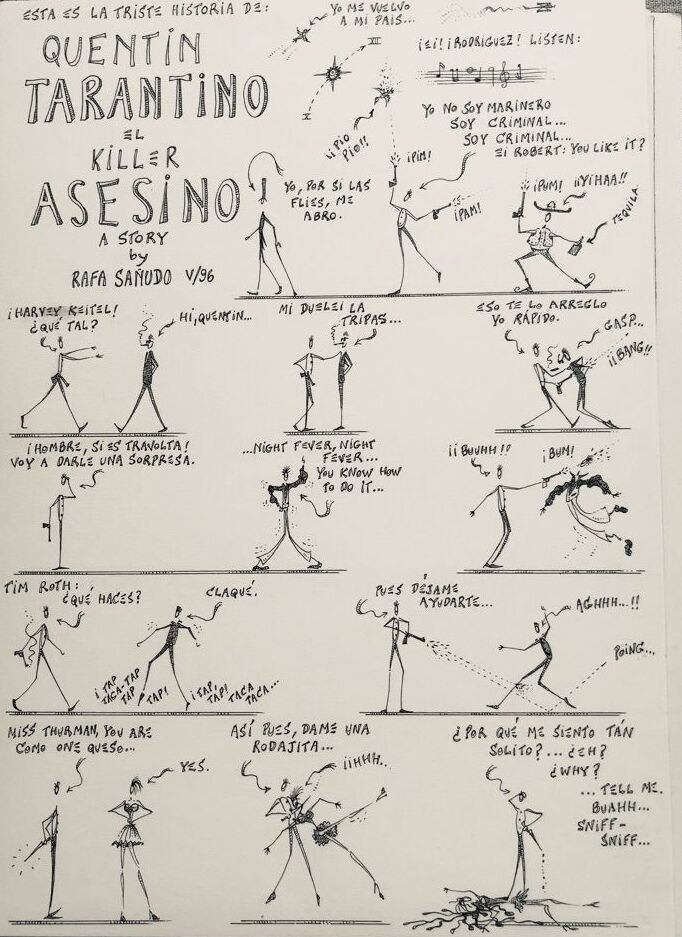 ESTA ES LA TRISTE HISTORIA DE:
QUENTIN
TARANTINO
EL
KILLER
ASESINO
A STORY
by
RAFA SAÑUDO V/96
YO ME VUELVO
A MI PAÍS...
XII
X
¡¡PIO
PIO!!
YO, POR SI LAS
FLIES, ME
ABRO.
¡EI! ¡RODRIGUEZ! LISTEN:
YO NO SOY MARINERO
SOY CRIMINAL...
SOY CRIMINAL...
EI ROBERT: YOU LIKE IT?
¡PIM!
¡PAM!
¡PUM! ¡¡YIHAA!!
TEQUILA.
¡HARVEY KEITEL!
¿QUÉ TAL?
HI, QUENTIN...
MI DUELEI LA
TRIPAS...
ESO TE LO ARREGLO
YO RÁPIDO.
GASP...
¡¡BANG!!
¡HOMBRE, SI ES TRAVOLTA!
VOY A DARLE UNA SORPRESA.
...NIGHT FEVER, NIGHT
FEVER...
YOU KNOW HOW
TO DO IT...
¡¡BUUHH!!
¡BUM!
TIM ROTH:
¿QUÉ HACES?
CLAQUÉ.
¡TAP
TACA-TAP
TAP TAP!
¡TAP,
TAP! TACA
TACA...
PUES DÉJAME
AYUDARTE...
AGHHH...!!
POING...
MISS THURMAN, YOU ARE
COMO ONE QUESO...
YES.
ASÍ PUES, DAME UNA
RODAJITA...
¡¡HHH..
¿POR QUÉ ME SIENTO TÁN
SOLITO?... ¿EH?
¿WHY?
... TELL ME.
BUAHH...
SNIFF-
SNIFF...